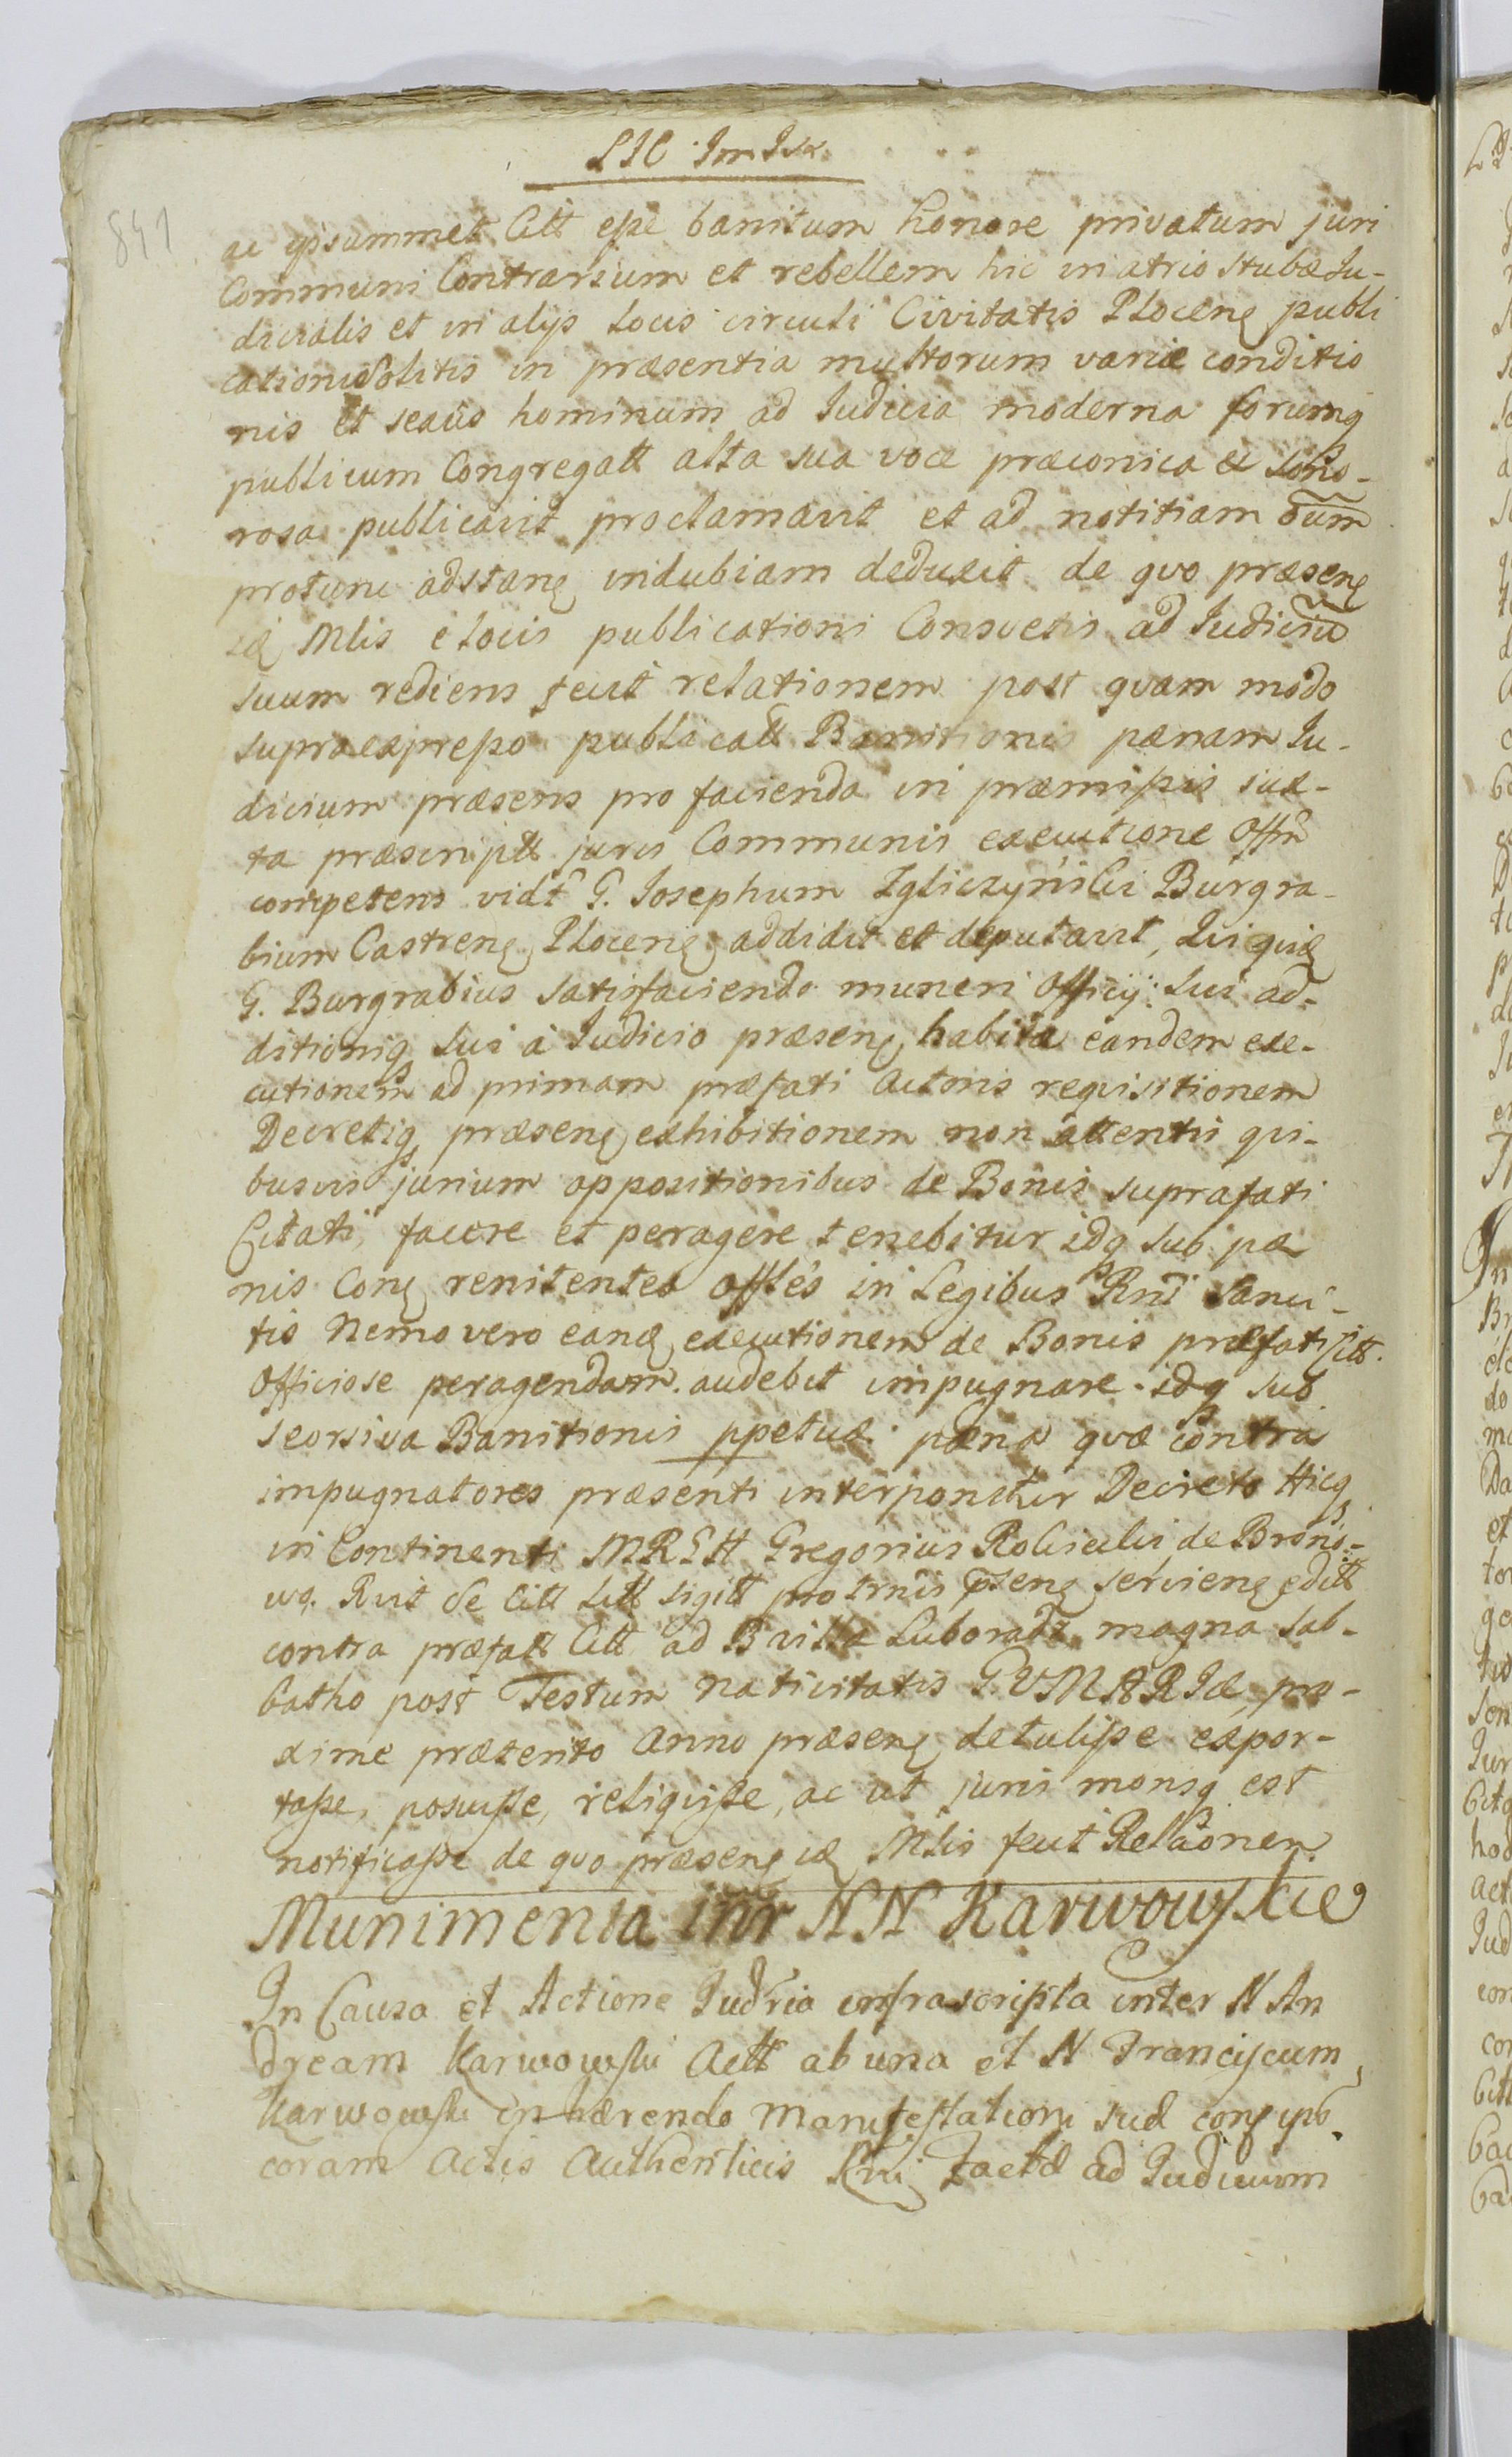 841
ac ipsummet Citt esse banitum honore privatum juri
Communi Contrarium et rebellem hic in atrio stubæ Ju-
dicialis et in alijs locis circuli Civitatis Plocenę publi
cationi solitis in præsentia multorum variæ conditio
nis et sexûs hominum ad Judicia moderna forumq
publicum Congregatt alta sua voce præconica et sono-
rosa publicavit proclamavit et ad notitiam oum
protunc adstanę indubiam deduxit de qvo præsenę
id Mlis e locis publicationi Consvetis ad Judiciu
suum rediens fecit relationem post qvam modo
supraexpresso publicatt Banitionis pænam Ju-
dicium præsens pro facienda in præmissis jux-
ta præscriptt juris Communis executione Offm
competens vidt G. Josephum Zgliczyński Burgra-
bium Castrenę Plocenę addidit et deputavit, Qui quid
G. Burgrabius satisfaciendo muneri Officij sui ad-
ditioniq sui à Judicio præsenę habita eandem exe-
cutionem ad primam præfati Actoris reqvisitionem
Decretiq præsenę exhibitionem non attentis qvi-
busvis jurium oppositionibus de Bonis suprafati
Citati, facere et peragere tenebitur idq sub pæ
nis Conę renitentes Offles in Legibus Rni Sanci-
tis Nemo vero eand executionem de Bonis præfati Citt.
Officiose peragendam audebit impugnare idq sub
seorsiva Banitionis ppetuæ pæna qvæ contra
impugnatores præsenti interponitur Decreto Hicq
in Continenti MRSH Gregorius Rokicki de Brono-
wo Rvit se Citt litt sigitt pro trnis psenę servienę editt
contra præfatt Citt ad B villa Luboradz magna Sab-
batho post Festum Nativitatis G V MARIÆ pro-
xime præterito Anno præsenę detulisse expor-
tasse, posuisse, reliqvisse, ac ut juris monsq est
notificasse de qvo præsenę id Mlis fecit Relaonem
Munimenta intr NN Karwowskie
In Causa et Actione Judria infrascripta inter N An
dream Karwowski Actt ab una et N Franciscum
Karwowski inhærendo Manifestationi suæ
coram Actis Authenticis ad Judicium